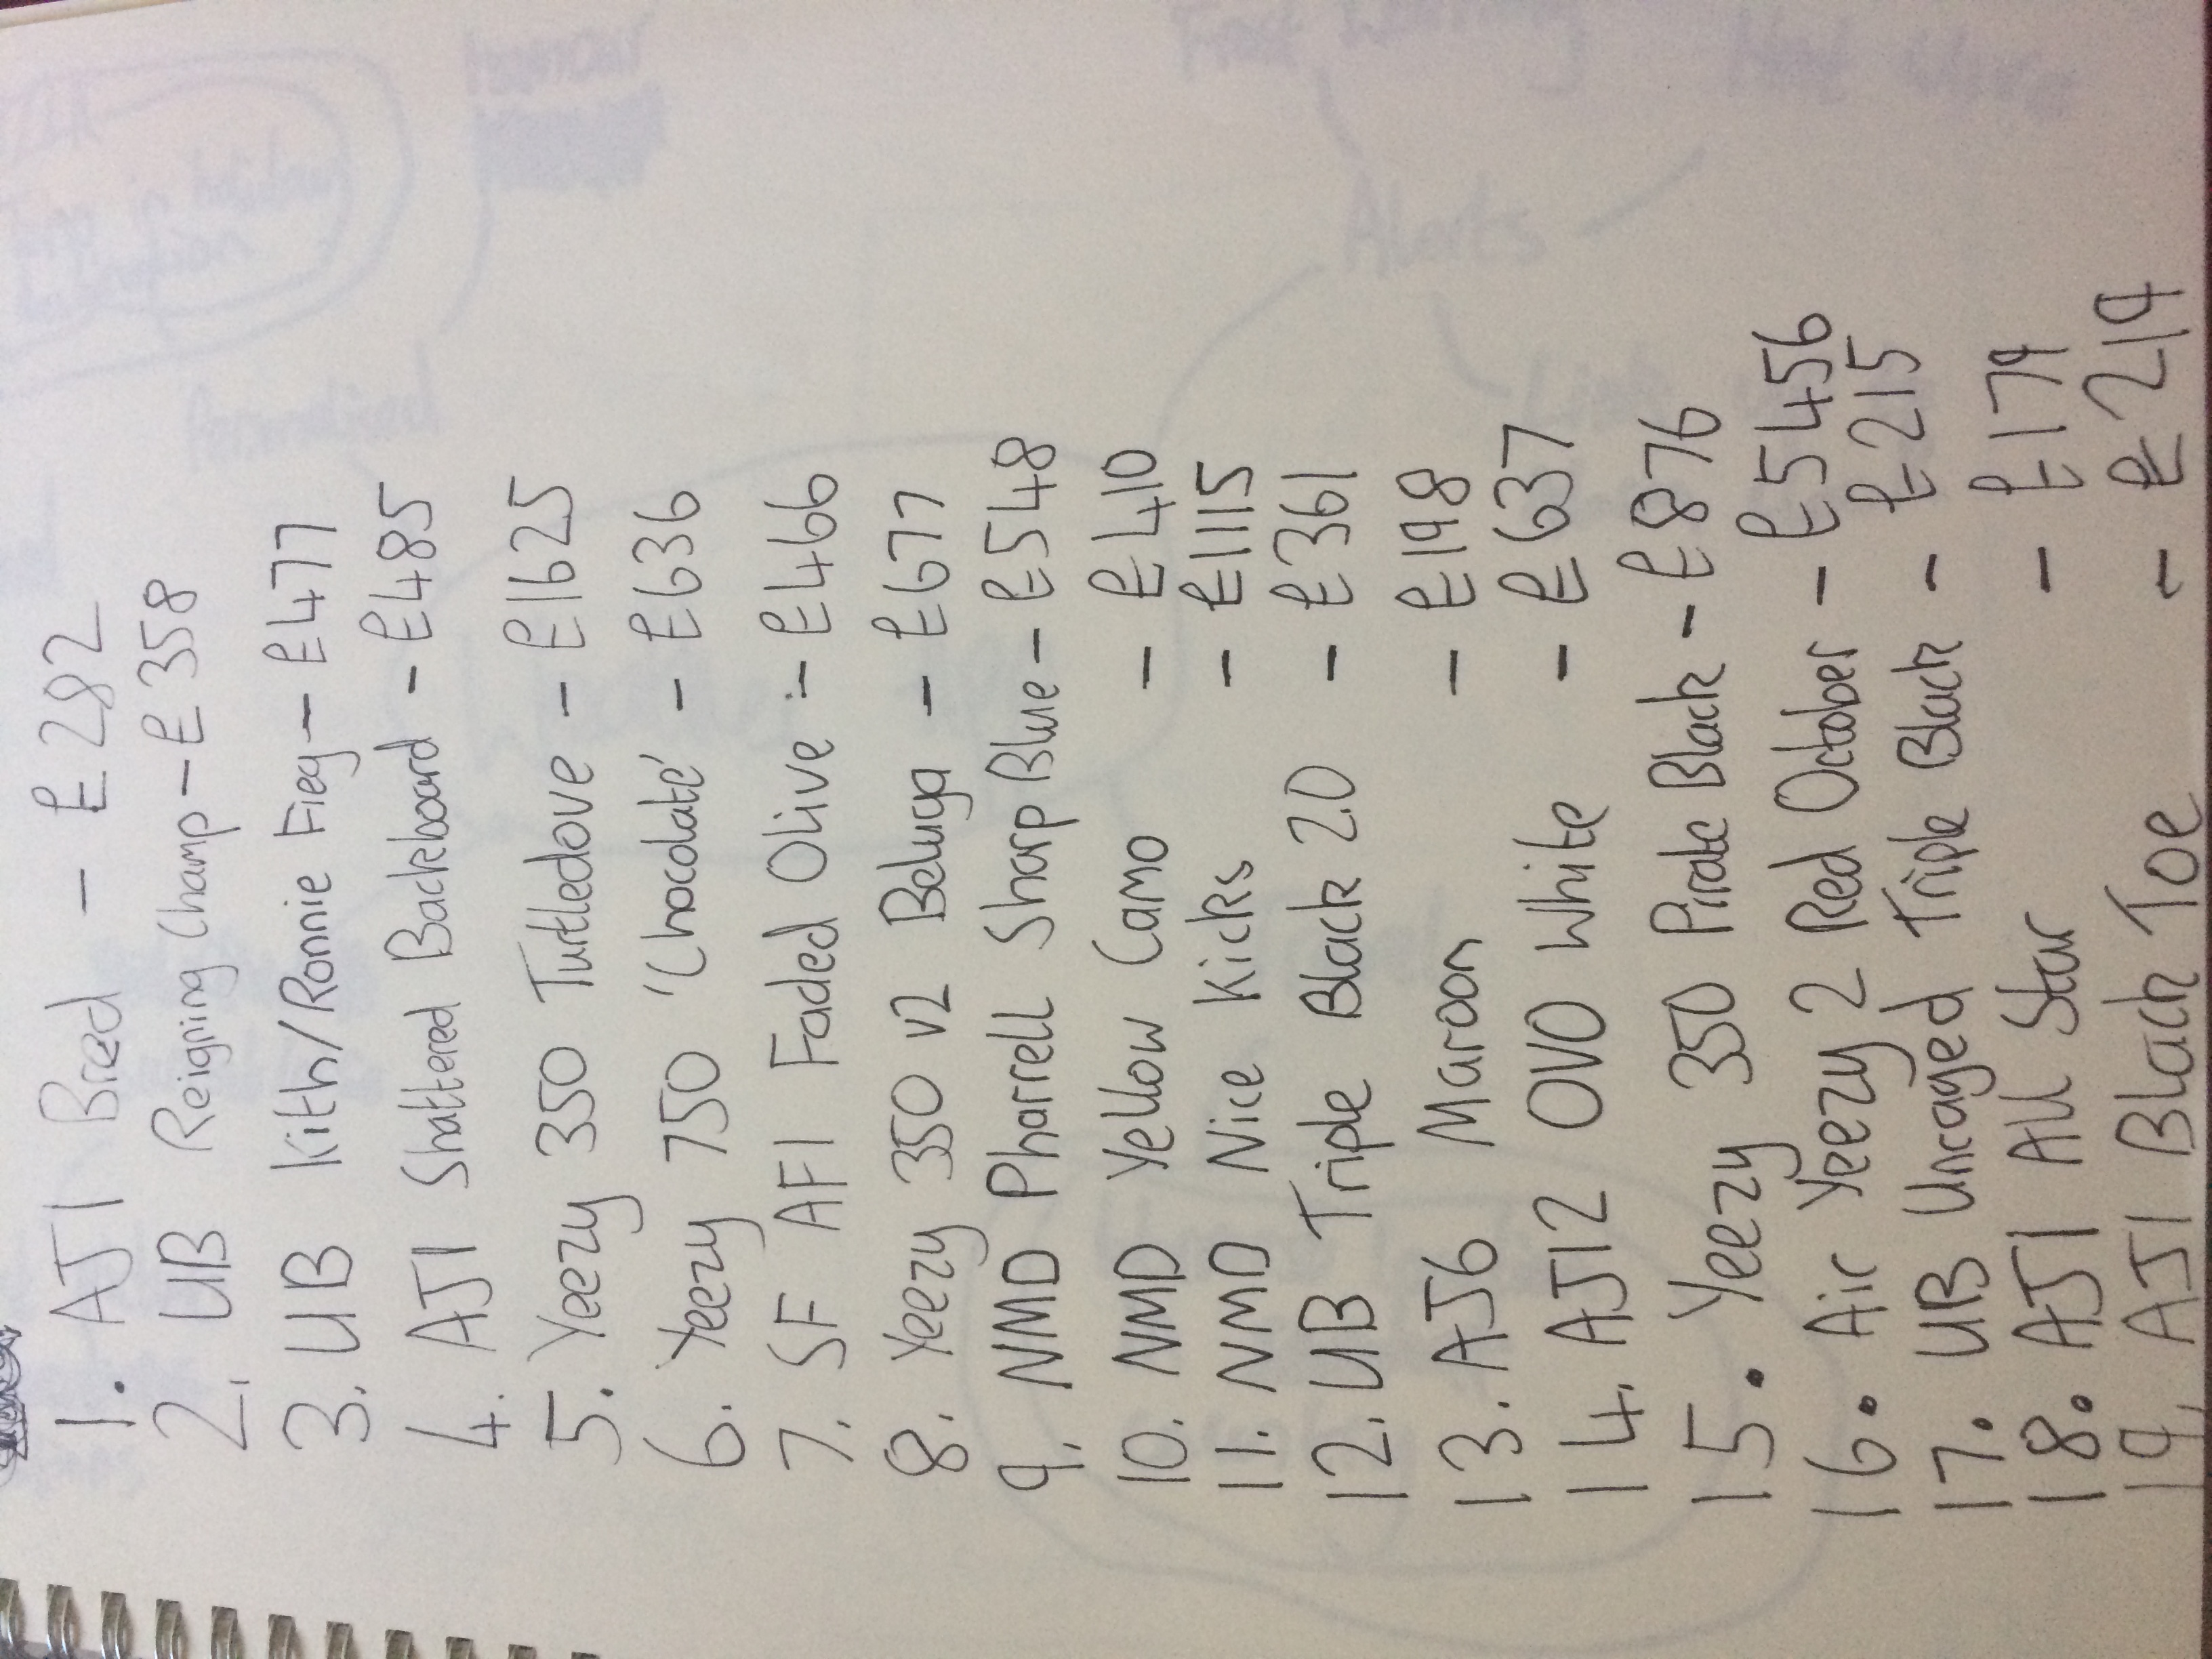 1. AJ1 Bred - £282
2. UB Reigning Champ - £358
3. UB Kith/Ronnie Fieg - £477
4. AJ1 Shattered Backboard - £485
5. Yeezy 350 Turtledove - £1625
6. Yeezy 750 'Chocolate' - £636
7. SF AF1 Faded Olive - £466
8. Yeezy 350 v2 Beluga - £677
9. NMD Pharrell Sharp Blue - £548
10. NMD Yellow Camo - £410
11. NMD Nice Kicks - £1115
12. UB Triple Black 2.0 - £361
13. AJ6 Maroon - £198
14. AJ12 OVO White - £637
15. Yeezy 350 Pirate Black - £876
16. Air Yeezy 2 Red October - £5456
17. UB Uncaged Triple Black - £215
18. AJ1 All Star - £179
19. AJ1 Black Toe - £219